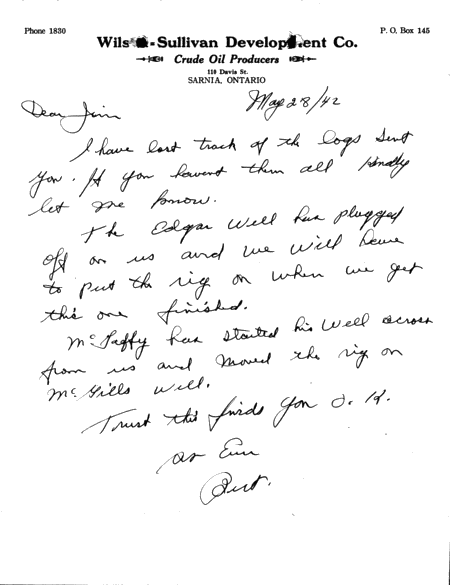 Phone 1830
P. O. Box 145
Wilson-Sullivan Development Co.
Crude Oil Producers
110 Davis St.
SARNIA, ONTARIO
May 28/42
Dear Jim
I have lost track of the logs sent
you. If you havent them all kindly
let me know.
The Edgar Well has plugged
off on us and we will have
to put the rig on when we get
this one finished.
has started his Well across
from us and moved the rig on
McGills well.
Trust this finds you O. K.
as Ever
Bert.